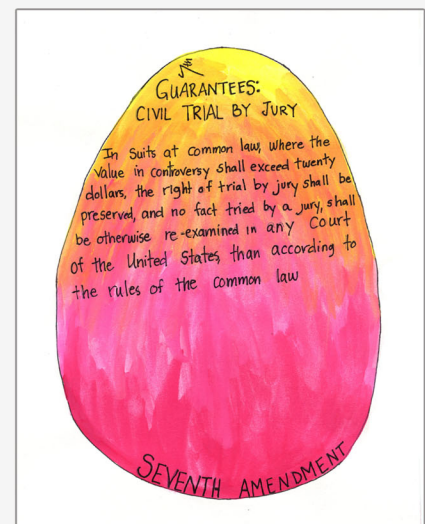 GUARANTEES:
CIVIL TRIAL BY JURY
In Suits at common law, where the
value in controversy shall exceed twenty
dollars, the right of trial by jury shall be
preserved, and no fact tried by a jury, shall
be otherwise re-examined in any Court
of the United States, than according to
the rules of the common law
SEVENTH AMENDMENT